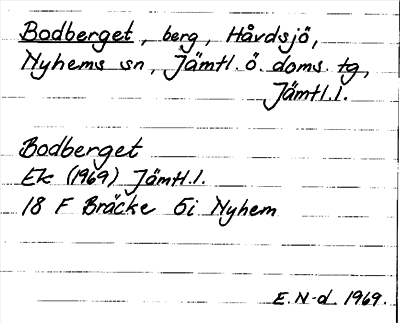 Bodberget, berg, Håvdsjö,
Nyhems sn, Jämtl. ö. doms. tg,
Jämtl.l.
Bodberget
Ek (1969) Jämtl.l.
18 F Bräcke 5i Nyhem
E. N-d 1969.